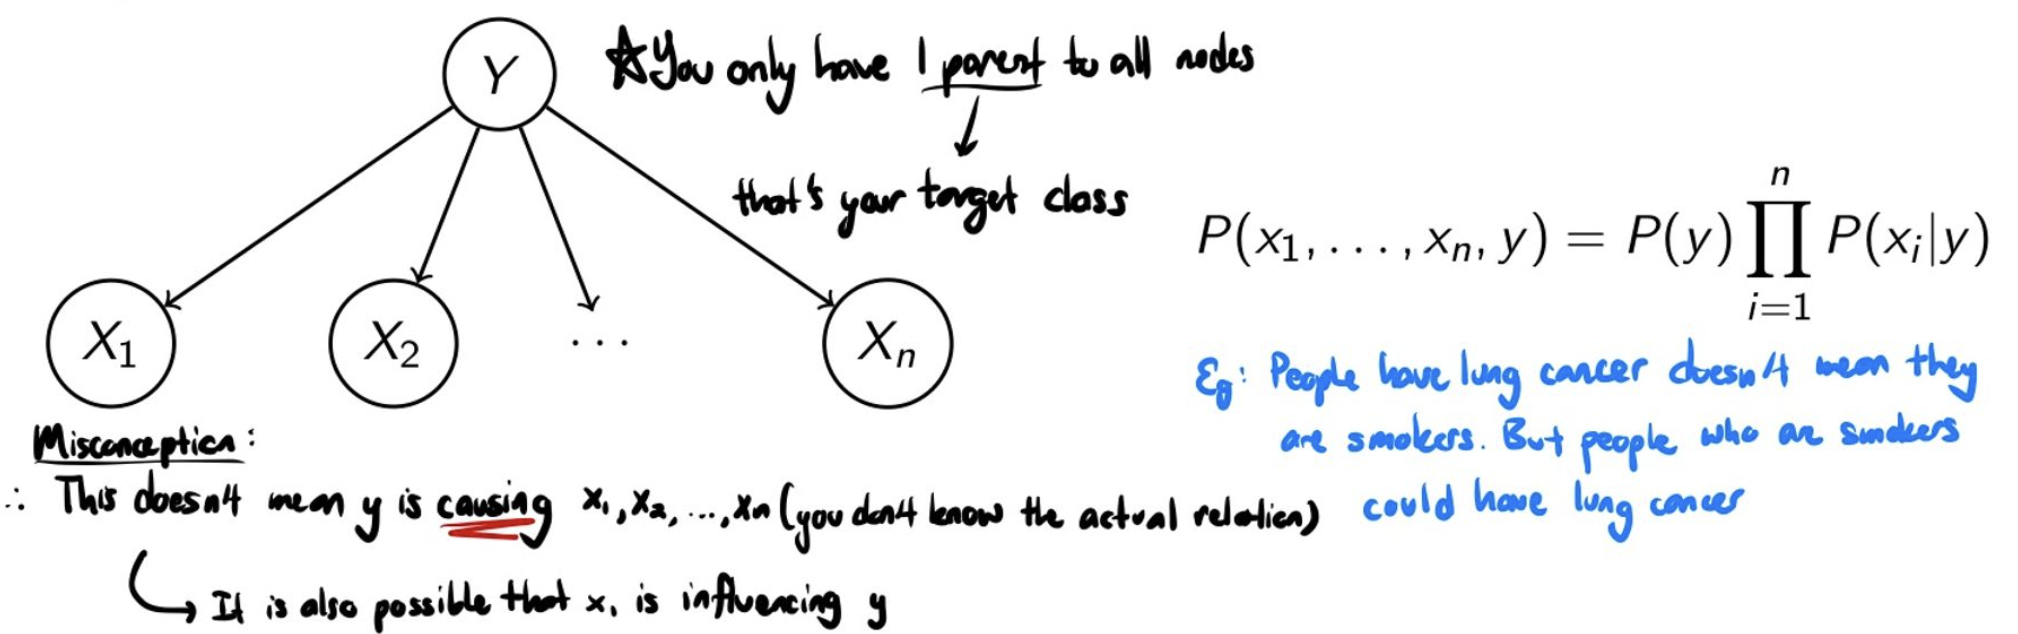 Y
☆ You only have 1 parent to all nodes
that's your target class
X₁ X₂ ... Xₙ
P(x₁, . . . , xₙ, y) = P(y) ∏ⁿᵢ₌₁ P(xᵢ|y)
Eg: People have lung cancer doesn't mean they
are smokers. But people who are smokers
could have lung cancer
Misconception:
∴ This doesn't mean y is causing x₁, x₂, ..., xn (you don't know the actual relation)
↳ It is also possible that x₁ is influencing y